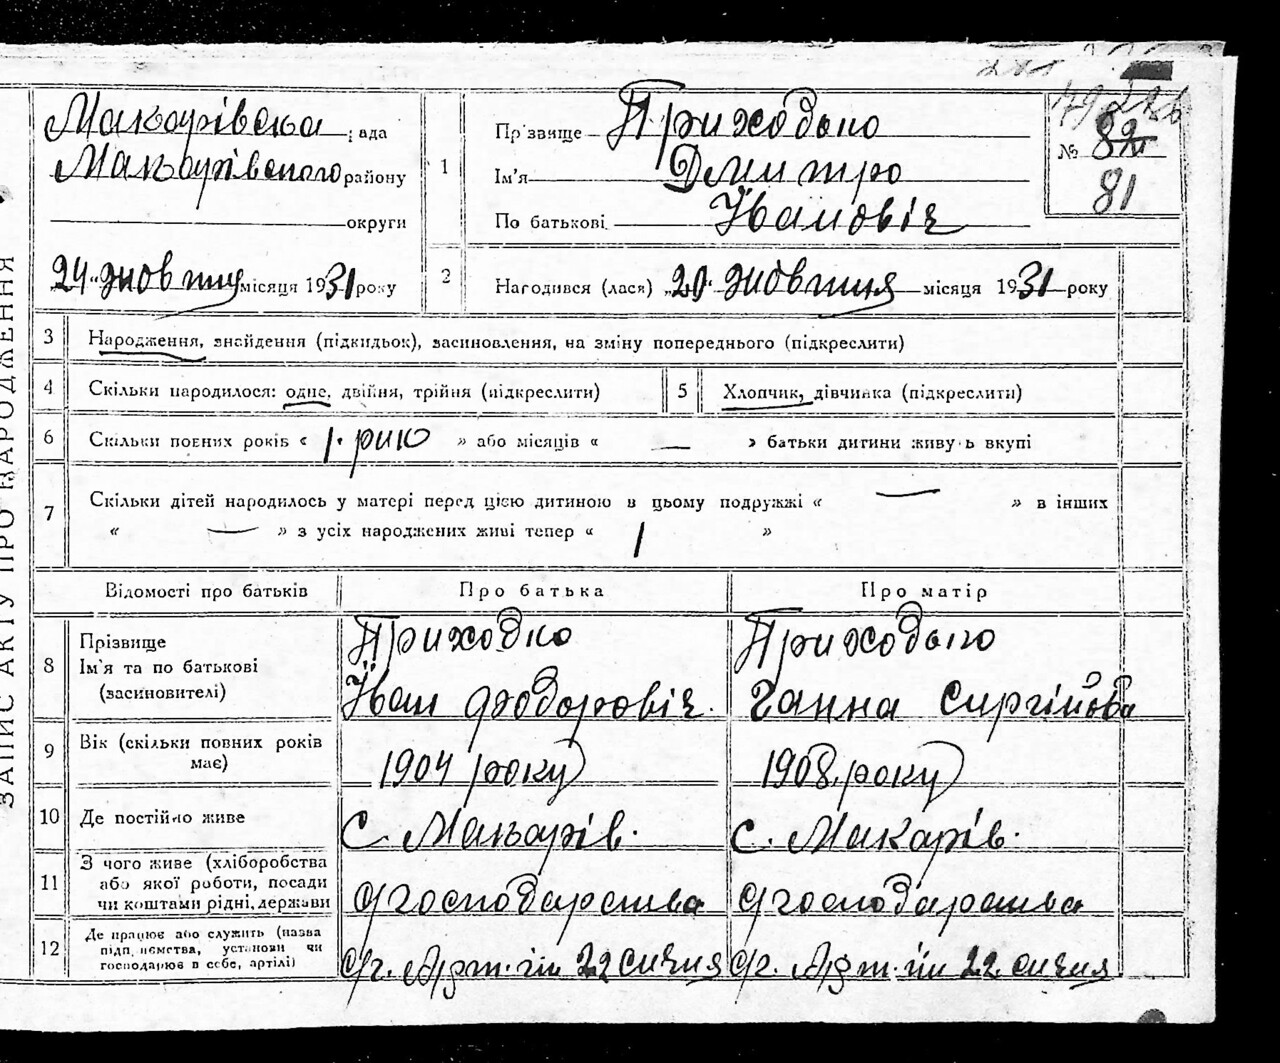 ЗАПИС АКТУ ПРО НАРОДЖЕННЯ
Макарівська рада
Макарівского району
округи
24 " жовтня місяця 1931 року
1
Прізвище Приходько
Ім'я Дмитро
По батькові Іванович
№ 82
81
2
Народився (лася) „20" жовтня місяця 1931 року
3 Народження, знайдення (підкидьок), засиновлення, на зміну попереднього (підкреслити)
4 Скільки народилося: одне, двійня, трійня (підкреслити)
5 Хлопчик, дівчинка (підкреслити)
6 Скільки повних років « 1. рик » або місяців « — » батьки дитини живуть вкупі
7 Скільки дітей народилось у матері перед цією дитиною в цьому подружжі « — » в інших
« — » з усіх народжених живі тепер « 1 »
Відомості про батьків Про батька Про матір
8 Прізвище
Ім'я та по батькові
(засиновителі)
Приходко
Іван Фодорович.
Приходько
Ганна Сиргійова
9 Вік (скільки повних років
має)
1904 року
1908 року
10 Де постійно живе
С. Макарів.
с. Макарів.
11 З чого живе (хліборобства
або якої роботи, посади
чи коштами рідні, держави
З господарства
З господарства
12 Де працює або служить (назва
підприємства, установи чи
господарює в себе, артілі)
22 сичня
22 сичня